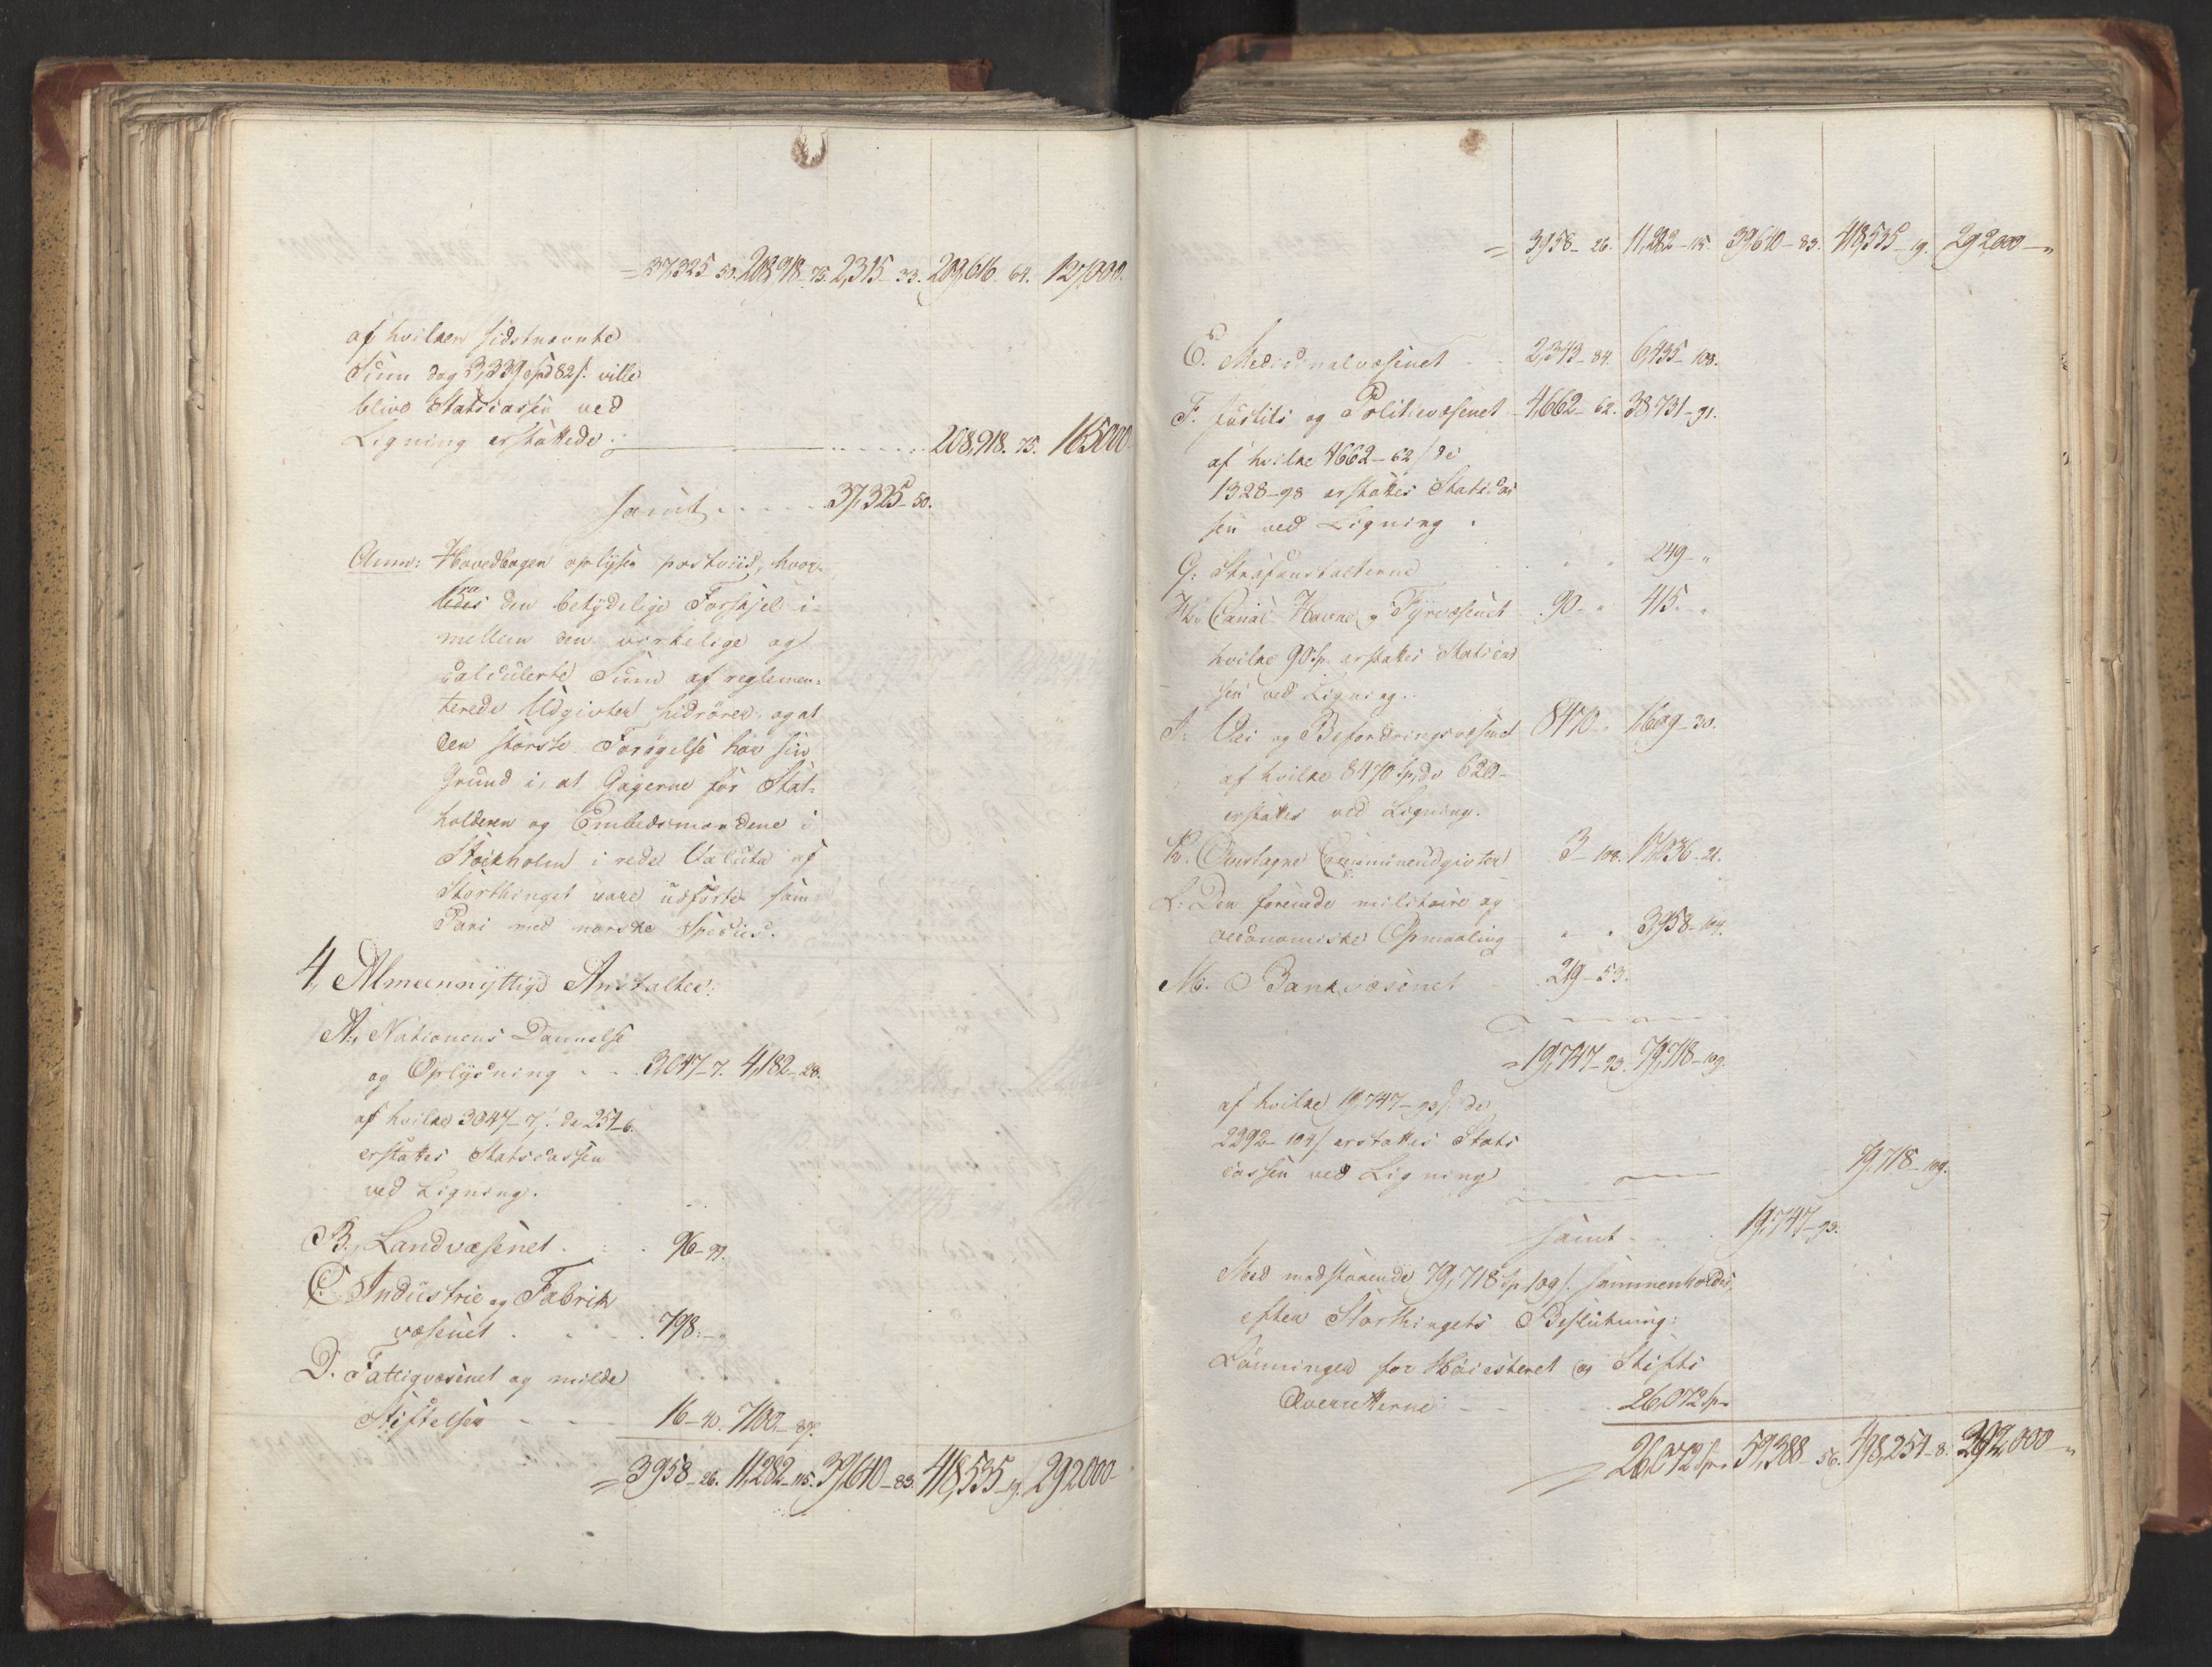 = 37,325 50. 208,918. 75. 2,315 33. 209,616 64. 127,000.
af hvilken sidstnævnte
Sum dog 3,339 Spd 82 s. ville
blive Statscassen ved
Ligning erstattede. 208,918. 75. 165000
samt 37,325 50.
Anm: Hovedbogen oplyser postviis, hvor-
fra den betydelige Forskjel i-
mellem den virkelige og
calculerte Sum af reglemen-
terede Udgivter hidrører, og at
den største Forøgelse har sin
Grund i, at Gagerne for Stat-
holderen og Embedsmændene i
Stockholm i rede Valuta af
Storthinget vare udførte som
Pari med norske Species.
4, Almeennyttige Anstalter:
A., Nationens Dannelse
og Oplysning 3,047-7. 4,182-28.
af hvilke 3047-7 s. de 254-6.
erstattes Statscassen
ved Ligning.
B., Landvæsenet 96-97.
C. Industrie og Fabrik
væsenet 798.-"
D. Fattigvæsenet og milde
Stiftelser 16-40. 7100-87.
= 3958-26. 11,282-115. 39,640-83. 418,535-19. 292000-
= 3958-26. 11,282-115 39640-83. 418,535 19. 292000-"
E. Medicinalvæsenet 2,343-84. 6,435-103.
F. Justits og Politievæsenet 4,662-62. 38,731-91.
af hvilke 4662-62 s de
1328-98 erstattes Statscas
sen ved Ligning.
G: Strafanstalterne " " 249-"
H., Canal Havne og Fyrvæsenet 90-" 415."
hvilke 90 Sp. erstattes Statscas
sen ved Ligning.
I. Vei og Befordringsvæsenet 8470 " 1609-30.
af hvilke 8470 Sp, de 620-
erstattes ved Ligning.
K. Overtagne Communeudgivter 3-108. 17,036-21.
L: Den forenede militaire og
oeconomiske Opmaaling " " 3,958-104.
M. Bankvæsenet 219-53.
= 19,747-93. 79,718-109.
af hvilke 19,747-93 s. de
2292-104 s erstattes Stats
cassen ved Ligning 79,718-109.
samt 19,747-93.
Med modstaaende 79,718 Sp 109 s. sammenholdes,
efter Storthingets Beslutning:
Lønninger for Høiesteret og Stifts
Overretterne 26,072 Sp.
26,072 Sp. 59,388-56. 498,254-8. 292,000-"